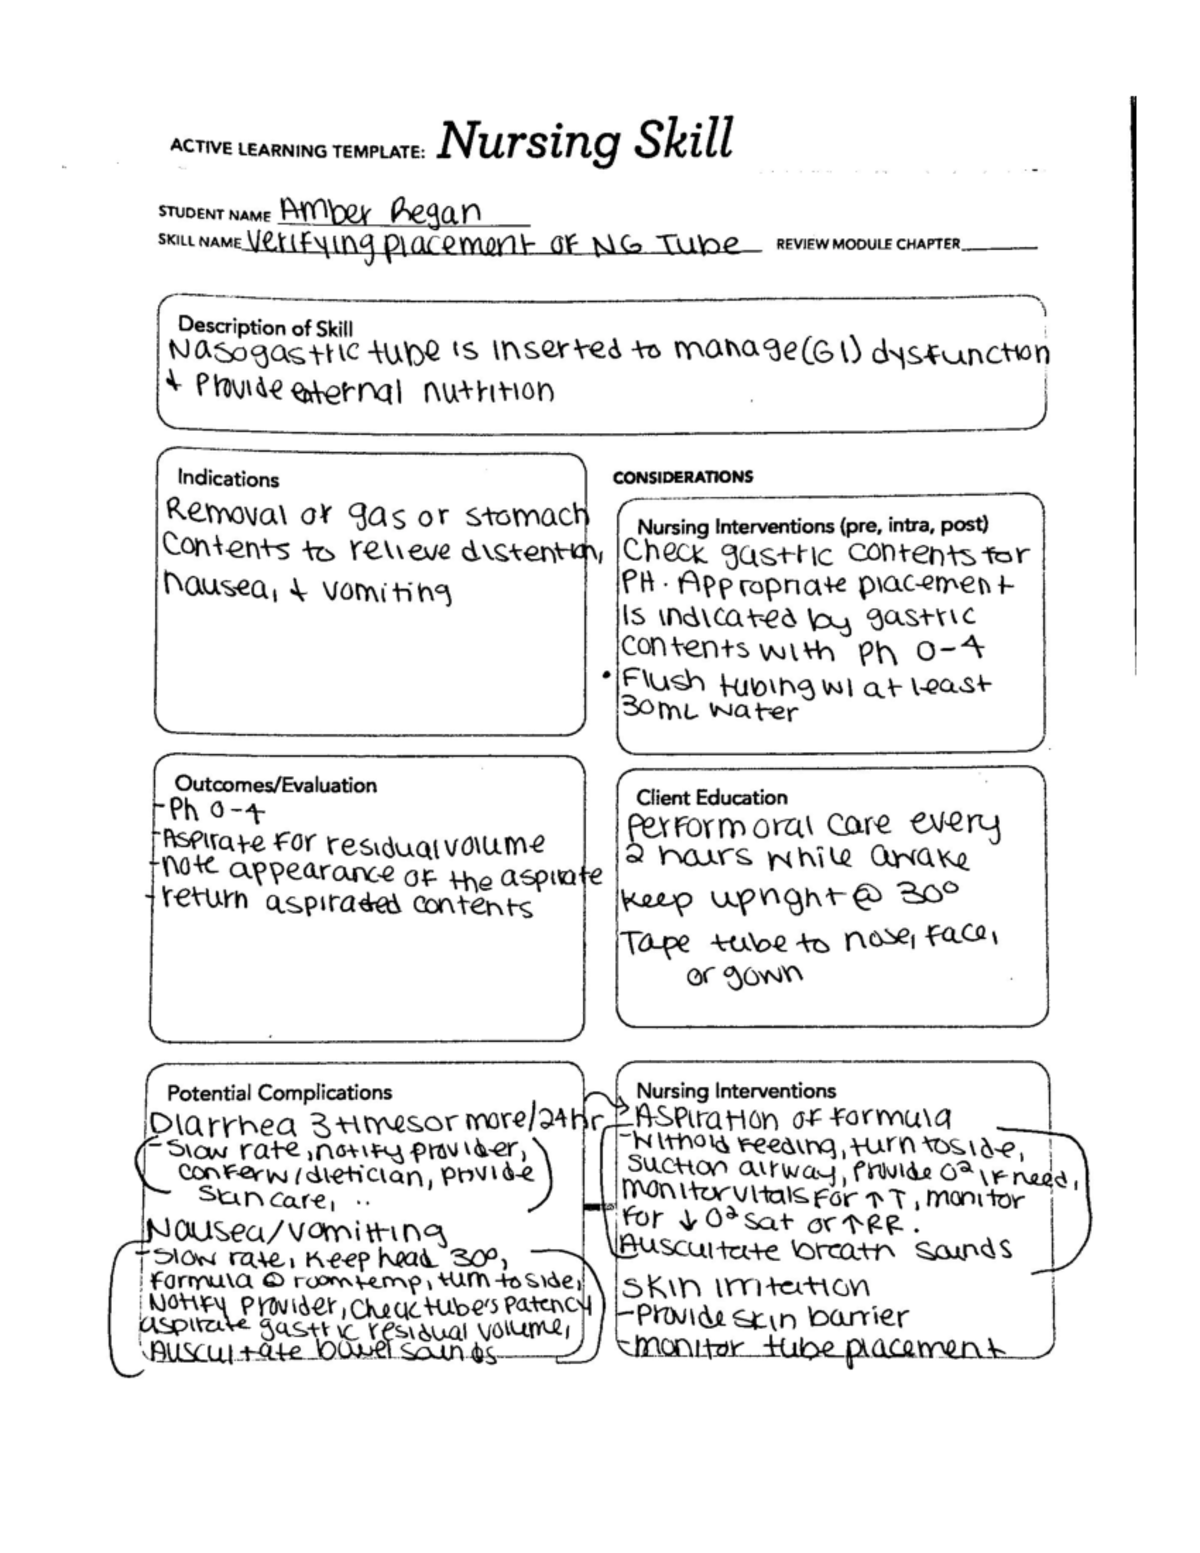 ACTIVE LEARNING TEMPLATE: Nursing Skill
STUDENT NAME Amber Regan
SKILL NAME Verifying placement of NG Tube REVIEW MODULE CHAPTER
Description of Skill
Nasogastric tube is inserted to manage (GI) dysfunction
+ Provide enternal nutrition
Indications
Removal of gas or stomach
contents to relieve distention,
nausea, + vomiting
CONSIDERATIONS
Nursing Interventions (pre, intra, post)
Check gastric contents for
PH. Appropriate placement
is indicated by gastric
contents with Ph 0-4
• Flush tubing w/ at least
30mL water
Outcomes/Evaluation
-Ph 0-4
-Aspirate for residual volume
-note appearance of the aspirate
-return aspirated contents
Client Education
Perform oral care every
2 hours while awake
Keep upright @ 30°
Tape tube to nose, face,
or gown
Potential Complications
Diarrhea 3 times or more/24hr
-Slow rate, notify provider,
confer w/dietician, provide
skin care, ..
Nausea/vomitting
-Slow rate, Keep head 30°,
formula @ room temp, turn to side,
Notify Provider, Check tube's patency
aspirate gastric residual volume,
Auscultate bowel sounds
Nursing Interventions
-Aspiration of formula
-Withold feeding, turn to side,
suction airway, Provide O² if need,
monitor vitals for ↑ T, monitor
for ↓ O² sat or ↑RR.
Auscultate breath sounds
Skin irritation
-Provide skin barrier
-monitor tube placement